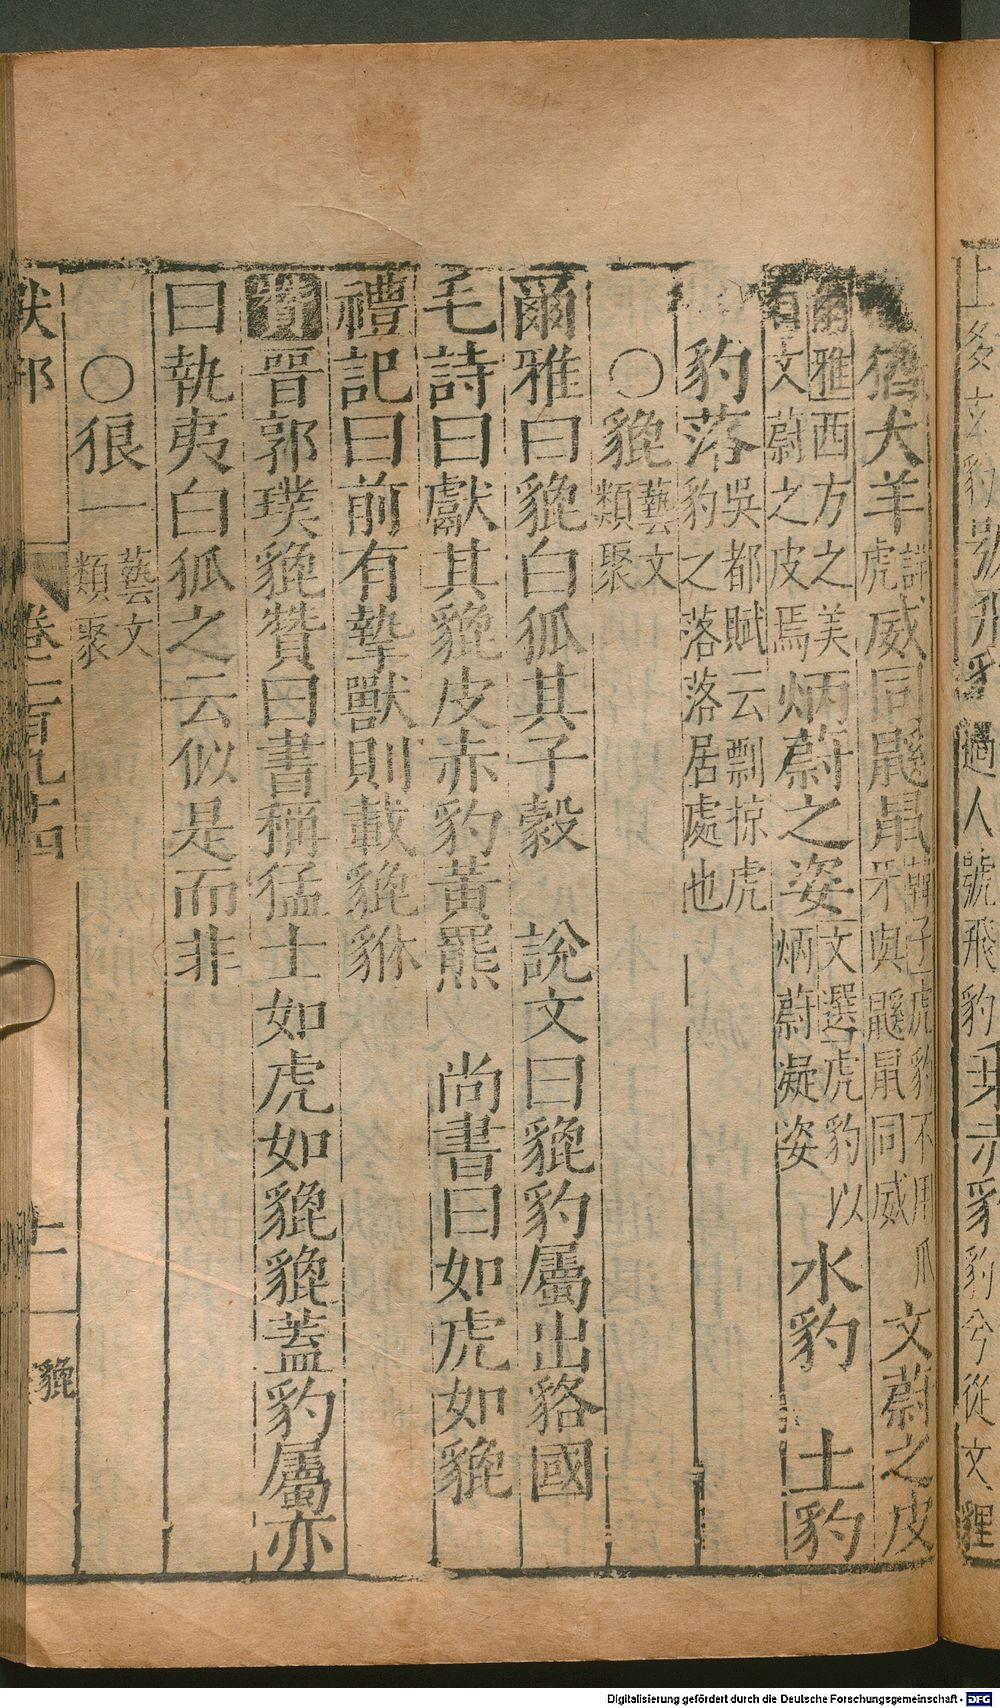 上多玄豹號飛豹過人號飛豹乘赤豹豹兮從文貍
猶犬羊詳虎威同鼷鼠韓子虎豹不用爪牙與鼷鼠同威文蔚之皮
爾雅西方之美有文蔚之皮焉炳蔚之姿文選虎豹以炳蔚凝姿水豹土豹
豹落吳都賦云剽掠虎豹之落落居處也
○貔藝文類聚
爾雅曰貔白狐其子縠 說文曰貔豹屬出貉國
毛詩曰獻其貔皮赤豹黃羆 尚書曰如虎如貔
禮記曰前有摯獸則載貔貅
贊晉郭璞貔贊曰書稱猛士如虎如貔貔蓋豹屬亦
曰執夷白狐之云似是而非
○狼一藝文類聚
獸部 卷一百九十四 十一 貔
Digitalisierung gefördert durch die Deutsche Forschungsgemeinschaft - DFG